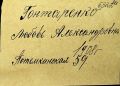 Гонтаренко
Любовь Александровна
1908г.
Потемкинская 59